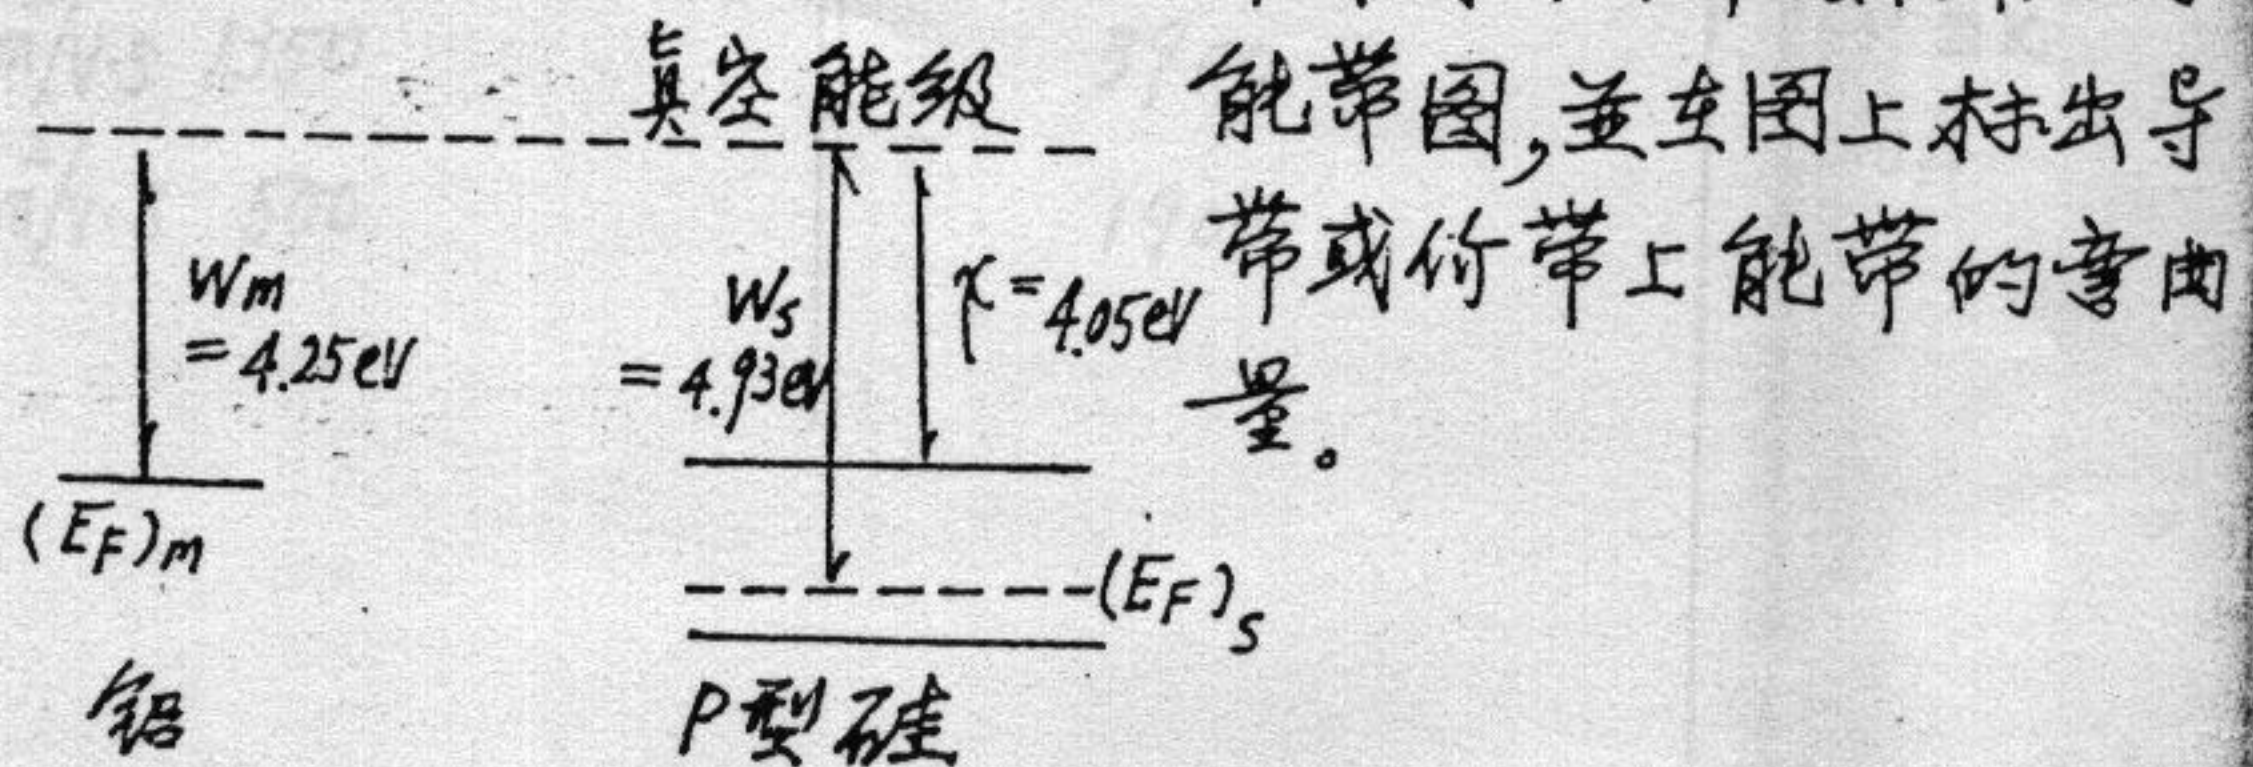 真空能级
Wm
= 4.25eV
Ws
= 4.93eV
χ = 4.05eV
(EF)m
(EF)s
铝
P型硅
能带图,並在图上标出导
带或价带上能带的弯曲
量。